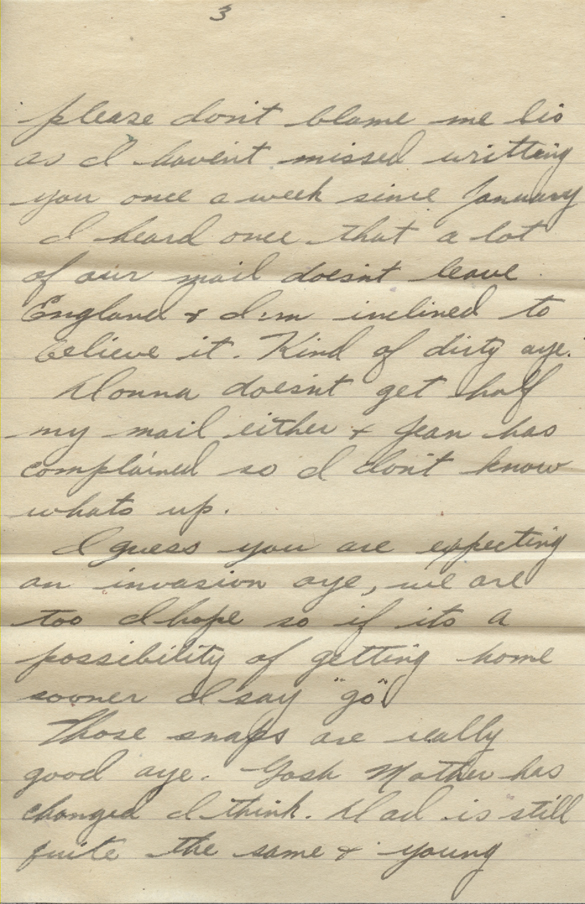 3
please don't blame me lis
as I haven't missed writting
you once a week since January
I heard once that a lot
of our mail doesnt leave
England & I'm inclined to
believe it. Kind of dirty aye.
Donna doesnt get half
my mail either & Jean has
complained so I don't know
whats up.
I guess you are expecting
an invasion aye, we are
too I hope so if its a
possibility of getting home
sooner I say "go"
Those snaps are really
good aye. Gosh Mother has
changed I think. Dad is still
quite the same & young